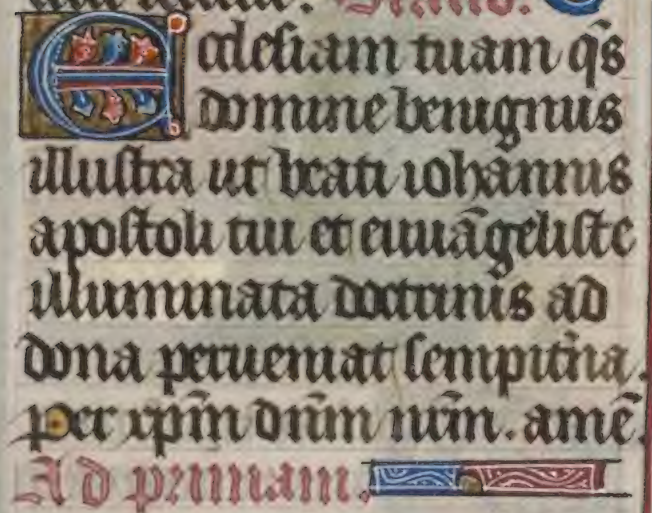 Ecclesiam tuam q̄s
domine benignus
illustra ut beati iohannis
apostoli tui et euuāgeliste
illuminata doctrinis ad
dona perueniat sempit̄na.
per xp̄m dn̄m nr̄m. amē.
Ad primam.